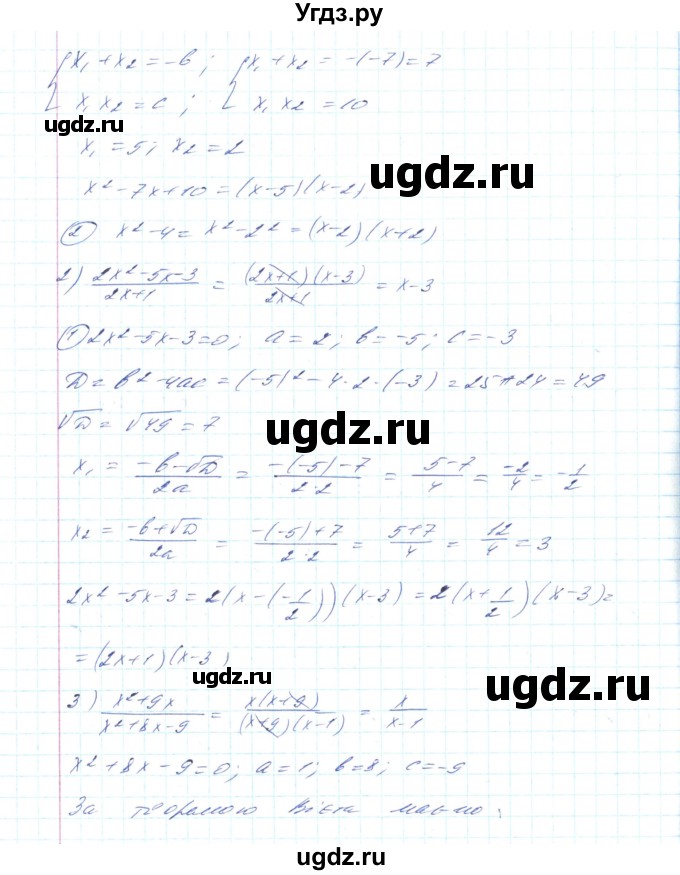 Угдз.ру
{x₁ + x₂ = -b ; {x₁ + x₂ = -(-7) = 7
x₁ x₂ = c ; x₁ x₂ = 10
ugdz.ru
ugdz.ru
x₁ = 5; x₂ = 2
x² - 7x + 10 = (x-5)(x-2)
ugdz.ru
② x² - 4 = x² - 2² = (x-2)(x+2)
2) (2x² - 5x - 3)/(2x+1) = ((2x+1)(x-3))/(2x+1) = x-3
① 2x² - 5x - 3 = 0; a = 2; b = -5; c = -3
D = b² - 4ac = (-5)² - 4·2·(-3) = 25 + 24 = 49
√D = √49 = 7
ugdz.ru
x₁ = (-b-√D)/(2a) = (-(-5)-7)/(2·2) = (5-7)/4 = -2/4 = -1/2
x₂ = (-b+√D)/(2a) = (-(-5)+7)/(2·2) = (5+7)/4 = 12/4 = 3
ugdz.ru
2x² - 5x - 3 = 2(x-(-1/2))(x-3) = 2(x+1/2)(x-3) =
= (2x+1)(x-3)
ugdz.ru
3) (x²+9x)/(x²+8x-9) = (x(x+9))/((x+9)(x-1)) = x/(x-1)
x² + 8x - 9 = 0; a = 1; b = 8; c = -9
За теоремою Вієта маємо:
ugdz.ru
ugdz.ru